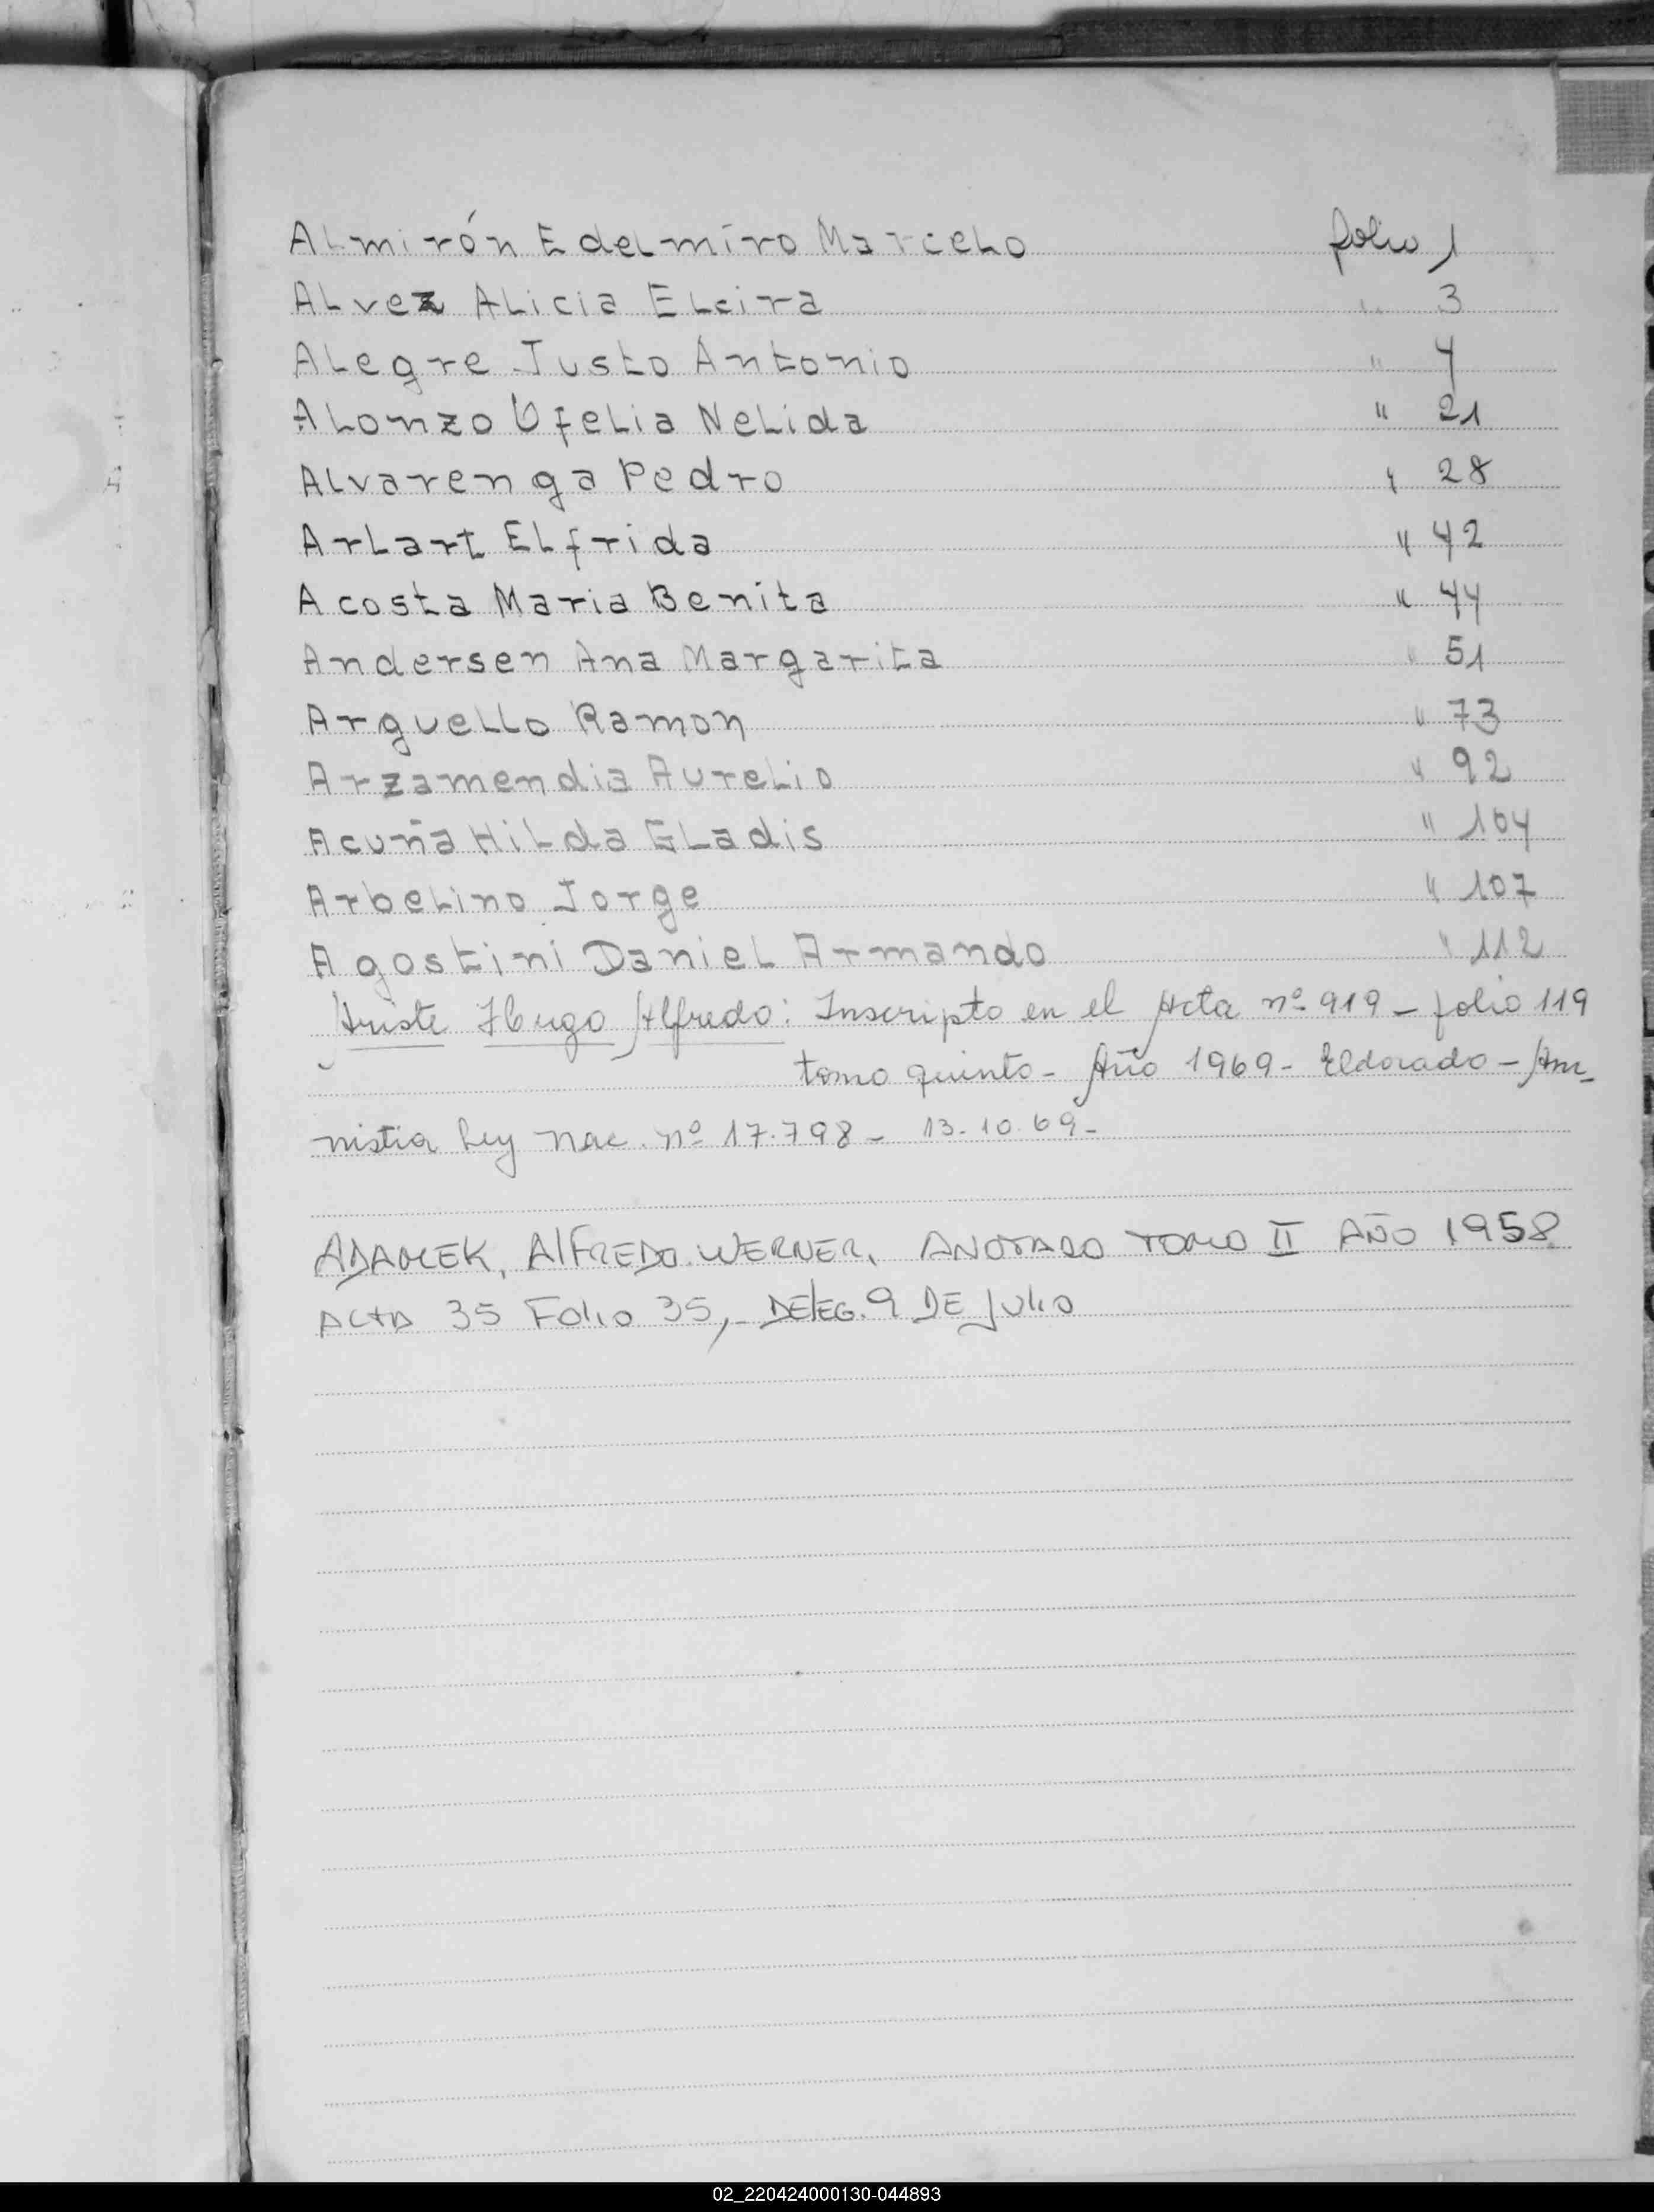 Almirón Edelmiro Marcelo folio 1
Alvez Alicia Elcira " 3
Alegre Justo Antonio " 4
Alonzo Ofelia Nelida " 21
Alvarenga Pedro " 28
Arlart Elfrida " 42
Acosta Maria Benita " 44
Andersen Ana Margarita " 51
Arguello Ramon " 73
Arzamendia Aurelio " 92
Acuña Hilda Gladis " 104
Arbelino Jorge " 107
Agostini Daniel Armando " 112
Hugo Alfredo: Inscripto en el Acta nº 919 - folio 119
tomo quinto - Año 1969 - Eldorado - Am-
nistia Ley Nac. nº 17.798 - 13.10.69 -
ADAMEK, AlFREDO WERNER, ANOTADO TOMO II AÑO 1958
ACTA 35 Folio 35, - DElEG. 9 DE Julio
02_220424000130-044893